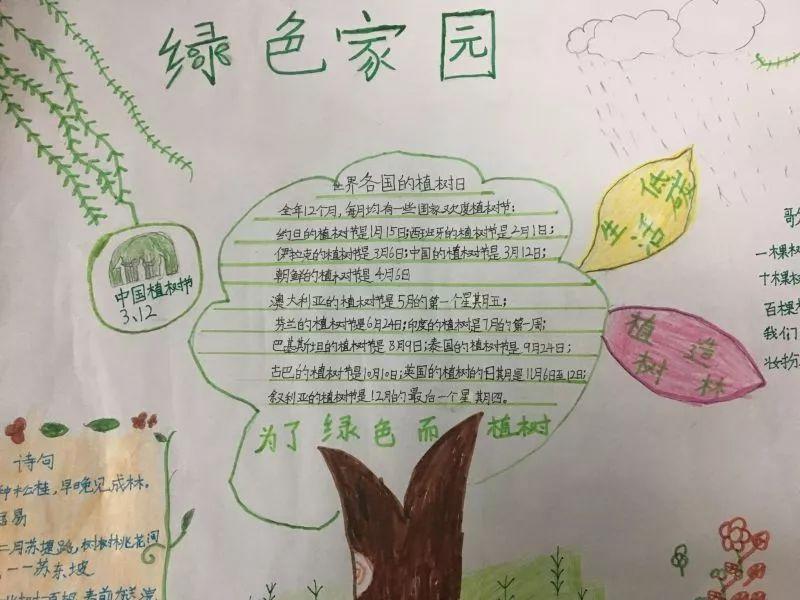 绿色家园
世界各国的植树日
全年12个月,每月均有一些国家欢度植树节:
约旦的植树节是1月15日;西班牙的植树节是2月1日;
伊拉克的植树节是3月6日;中国的植树节是3月12日;
朝鲜的植树节是4月6日
澳大利亚的植树节是5月的第一个星期五;
芬兰的植树节是6月24日;印度的植树是7月的第一周;
巴基斯坦的植树节是8月9日;泰国的植树节是9月24日;
古巴的植树节是10月10日;英国的植树的日期是11月6日至12日;
叙利亚的植树节是12月的最后一个星期四。
为了绿色而植树
中国植树节
3.12
低碳
生活
植造
树林
一棵树
十棵树
百棵
我们
妆扮
诗句
种松桂,早晚见成林。
居易
二月苏堤路,树树桃花间
,——苏东坡